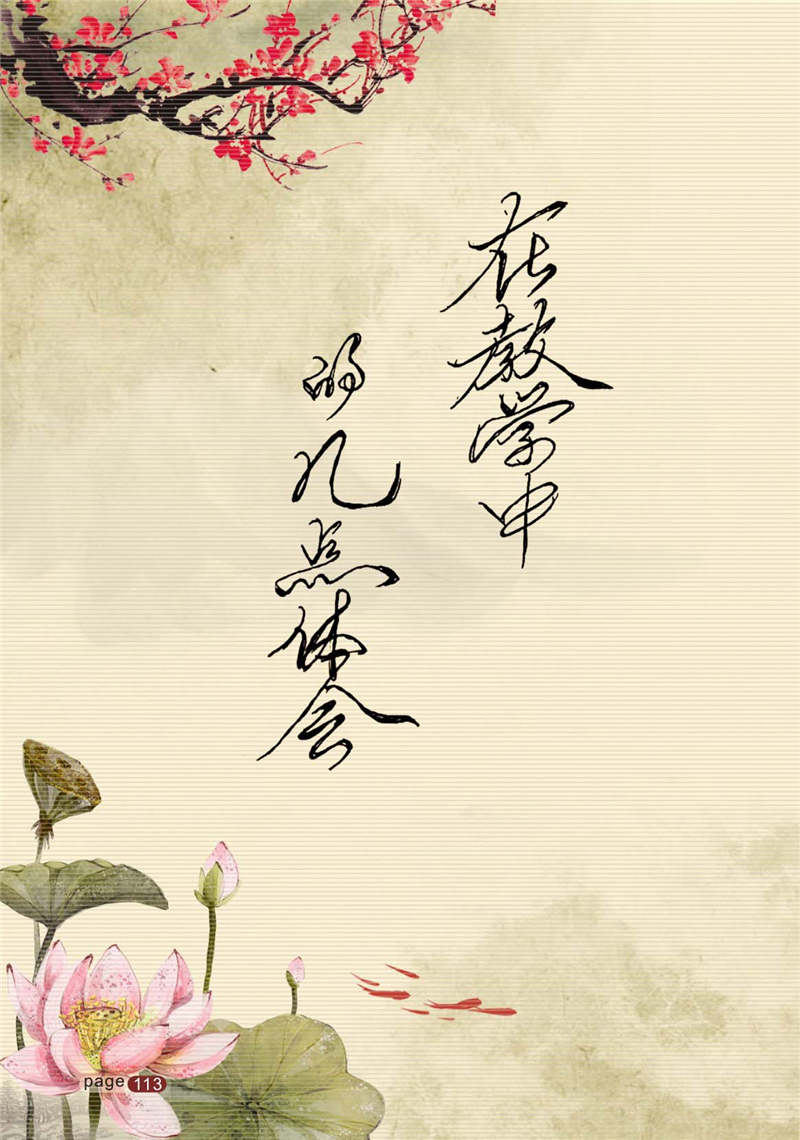 在教学中
的几点体会
page 113